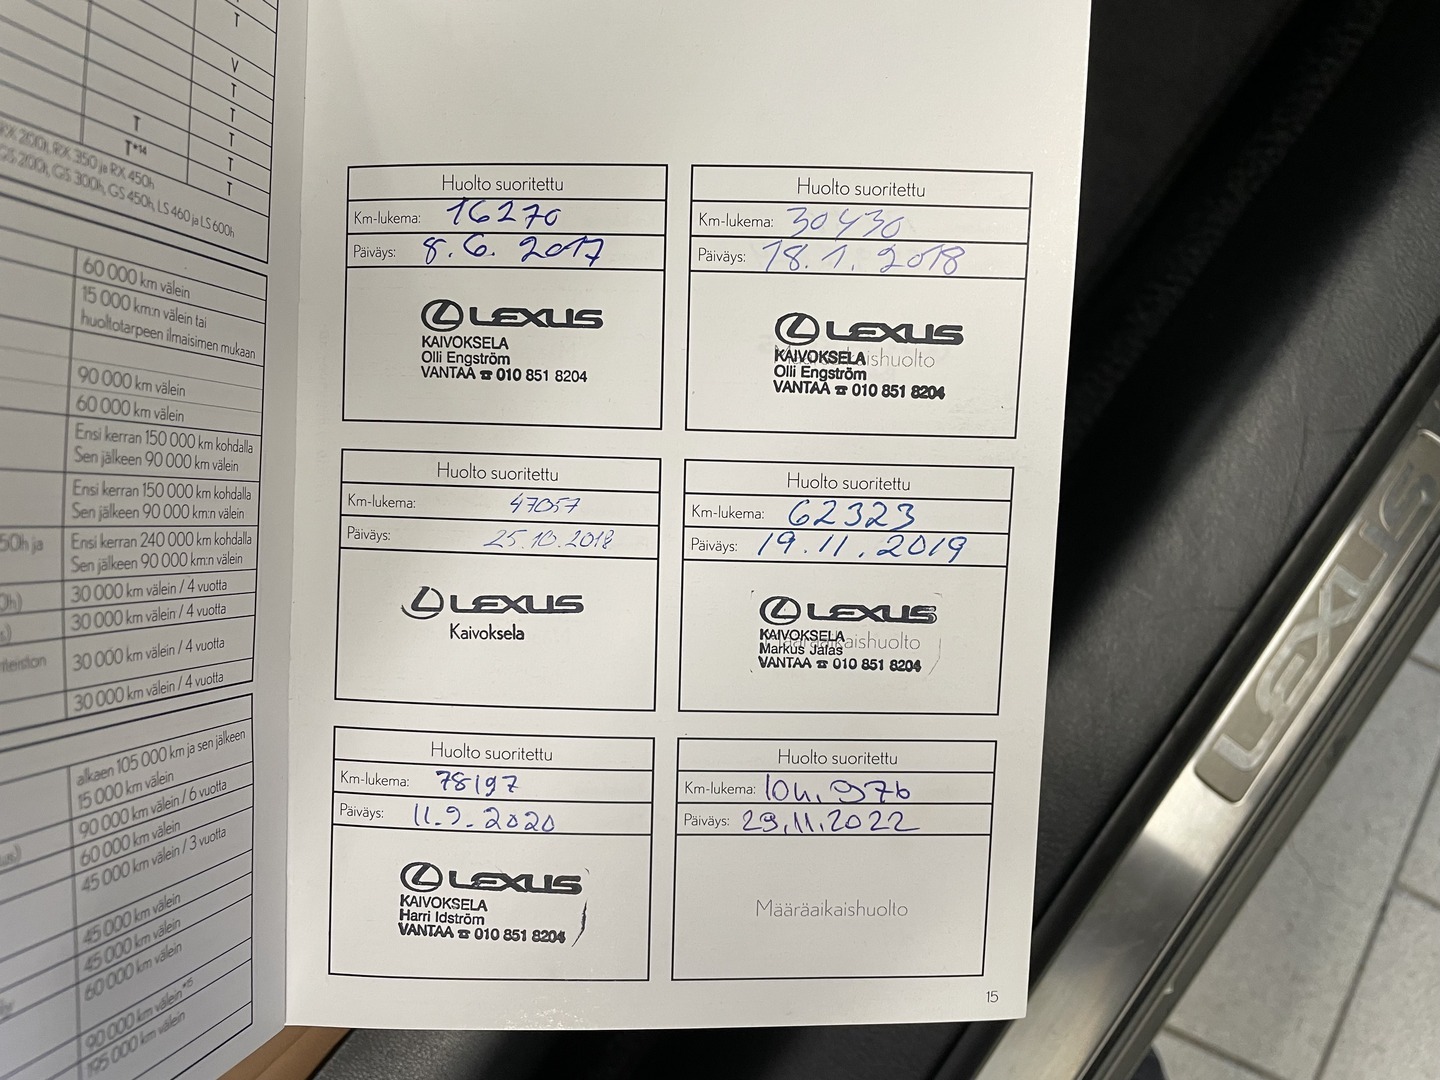 T
V
T
T
T
T
T
T
T*14
RX 200t, RX 350 ja RX 450h
GS 200t, GS 300h, GS 450h, LS 460 ja LS 600h
60 000 km välein
15 000 km:n välein tai
huoltotarpeen ilmaisimen mukaan
90 000 km välein
60 000 km välein
Ensi kerran 150 000 km kohdalla
Sen jälkeen 90 000 km välein
Ensi kerran 150 000 km kohdalla
Sen jälkeen 90 000 km:n välein
50h ja
Ensi kerran 240 000 km kohdalla
Sen jälkeen 90 000 km:n välein
30 000 km välein / 4 vuotta
30 000 km välein / 4 vuotta
30 000 km välein / 4 vuotta
30 000 km välein / 4 vuotta
alkaen 105 000 km ja sen jälkeen
15 000 km välein
90 000 km välein / 6 vuotta
60 000 km välein
45 000 km välein / 3 vuotta
45 000 km välein
45 000 km välein
60 000 km välein
90 000 km välein*15
195 000 km välein
Huolto suoritettu
Km-lukema: 16270
Päiväys: 8.6. 2017
LEXUS
KAIVOKSELA
Olli Engström
VANTAA ☎ 010 851 8204
Huolto suoritettu
Km-lukema: 30430
Päiväys: 18.1. 2018
LEXUS
Määräaikaishuolto
KAIVOKSELA
Olli Engström
VANTAA ☎ 010 851 8204
Huolto suoritettu
Km-lukema: 47057
Päiväys: 25.10.2018
LEXUS
Kaivoksela
Huolto suoritettu
Km-lukema: 62323
Päiväys: 19.11.2019
LEXUS
KAIVOKSELA
Määräaikaishuolto
Markus Jafas
VANTAA ☎ 010 851 8204
Huolto suoritettu
Km-lukema: 78197
Päiväys: 11.9.2020
LEXUS
KAIVOKSELA
Harri Idström
VANTAA ☎ 010 851 8204
Huolto suoritettu
Km-lukema: 104.976
Päiväys: 29.11.2022
Määräaikaishuolto
15
LEXUS